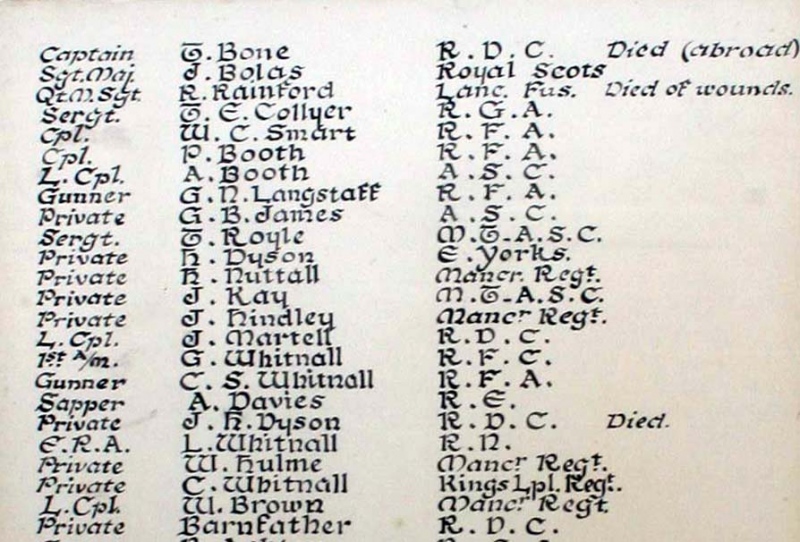 Captain T. Bone R. D. C. Died (abroad)
Sgt. Maj. J. Bolas Royal Scots
Qt. M. Sgt. R. Rainford Lanc. Fus. Died of wounds.
Sergt. T. E. Collyer R. G. A.
Cpl. W. C. Smart R. F. A.
Cpl. P. Booth R. F. A.
L. Cpl. A. Booth A. S. C.
Gunner G. N. Langstaff R. F. A.
Private G. B. James A. S. C.
Sergt. T. Royle M. T. A. S. C.
Private H. Dyson E. Yorks.
Private H. Nuttall Mancr. Regt.
Private J. Kay M. T. A. S. C.
Private J. Hindley Mancr Regt.
L. Cpl. J. Martell R. D. C.
1st A/m. G. Whitnall R. F. C.
Gunner C. S. Whitnall R. F. A.
Sapper A. Davies R. E.
Private J. H. Dyson R. D. C. Died.
E. R. A. L. Whitnall R. N.
Private W. Hulme Mancr Regt.
Private C. Whitnall Kings Lpl. Regt.
L. Cpl. W. Brown Mancr Regt.
Private Barnfather R. D. C.